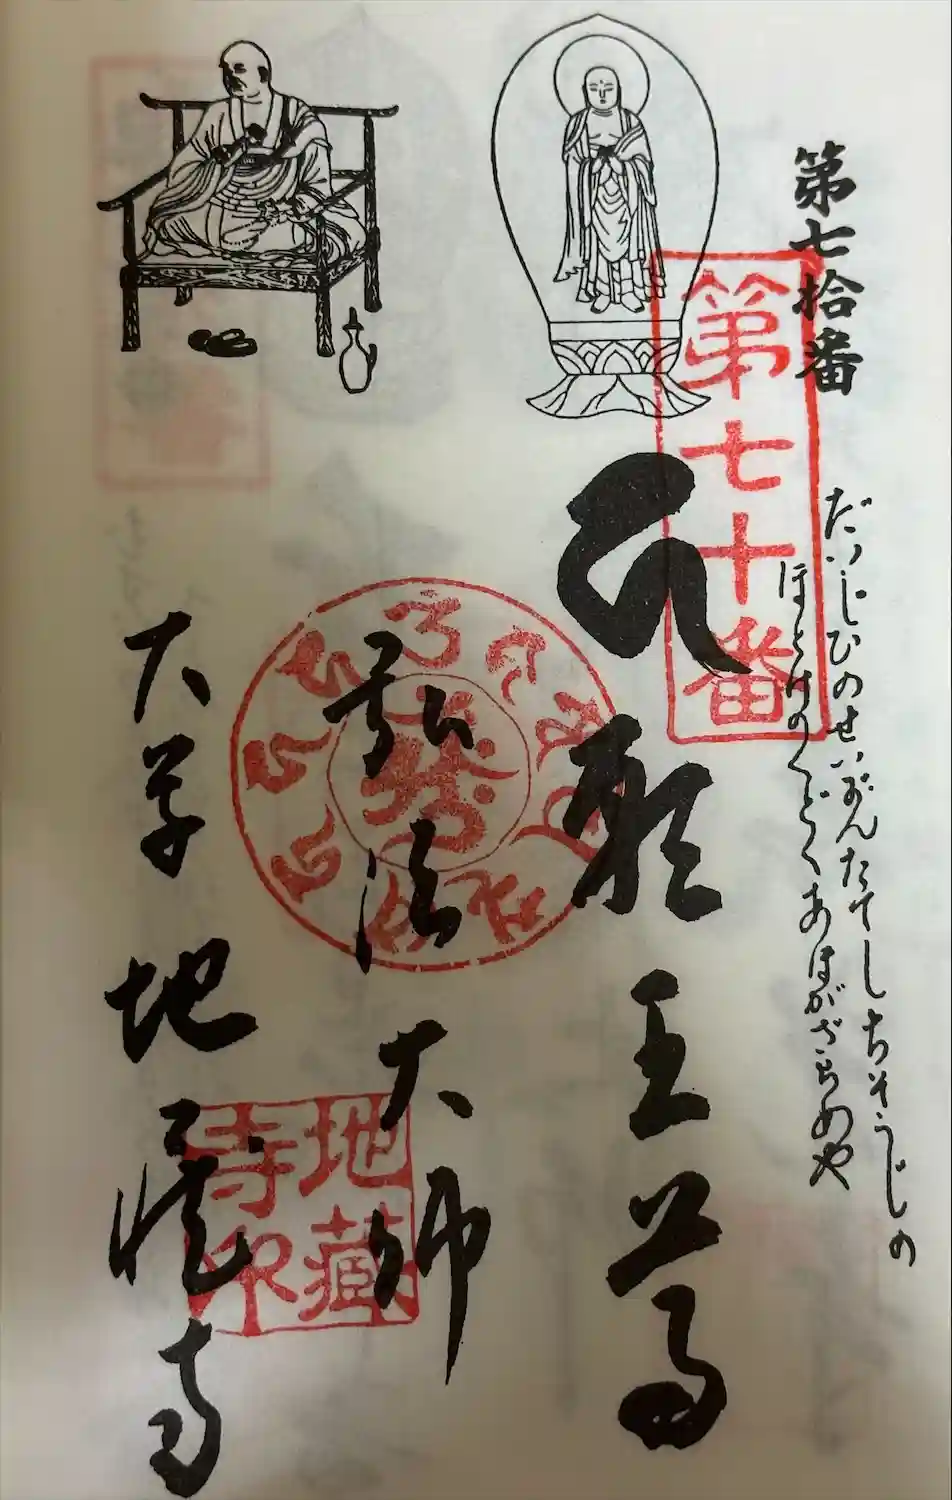 第七拾番
第七十番
だいじひのせいがんたてしちぞうじの
ほとけのくどくあほがざらめや
願王尊
弘法大師
大草 地蔵寺
地藏寺印